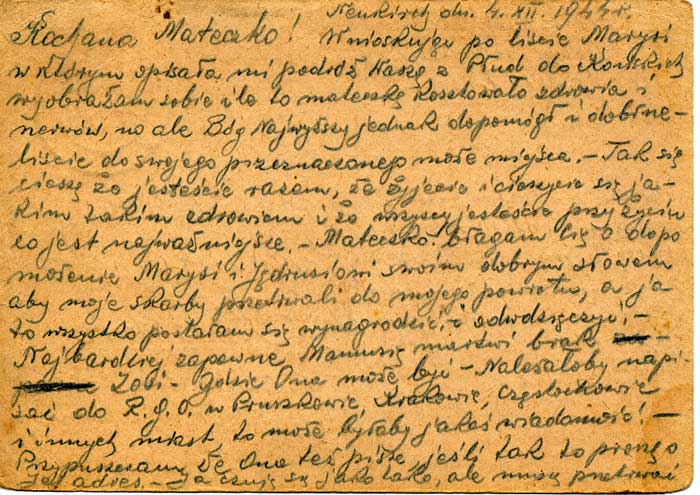 Neukirch dn. 4. XII. 1944 r.
Kochana Mateczko! Wnioskując po liście Marysi
w którym opisała mi podróż Waszą z Płud do Końskich
wyobrażam sobie ile to mateczkę kosztowało zdrowia i
nerwów, no ale Bóg Najwyższy jednak dopomógł i dobrnę-
liście do swojego przeznaczonego może miejsca. - Tak się
cieszę że jesteście razem, że żyjecie i cieszycie się ja-
kim takim zdrowiem i że wszyscy jesteście przy życiu
co jest najważniejsze. - Mateczko! błagam Cię o dopo
możenie Marysi i Jędrusiowi swoim dobrym słowem
aby moje skarby przetrwali do mojego powrotu, a ja
to wszystko postaram się wynagrodzić, i odwdzięczyć, -
Najbardziej zapewne Mamusię martwi brak -
Zosi - gdzie Ona może być - Należałoby napi
sać do R.G.O. w Pruszkowie, Krakowie, Częstochowie
i innych miast, to może byłaby jakaś wiadomość! -
Przypuszczam, że Ona też pisze, jeśli tak to proszę o
Jej adres. - Ja czuję się jako tako, ale muszę przetrwać